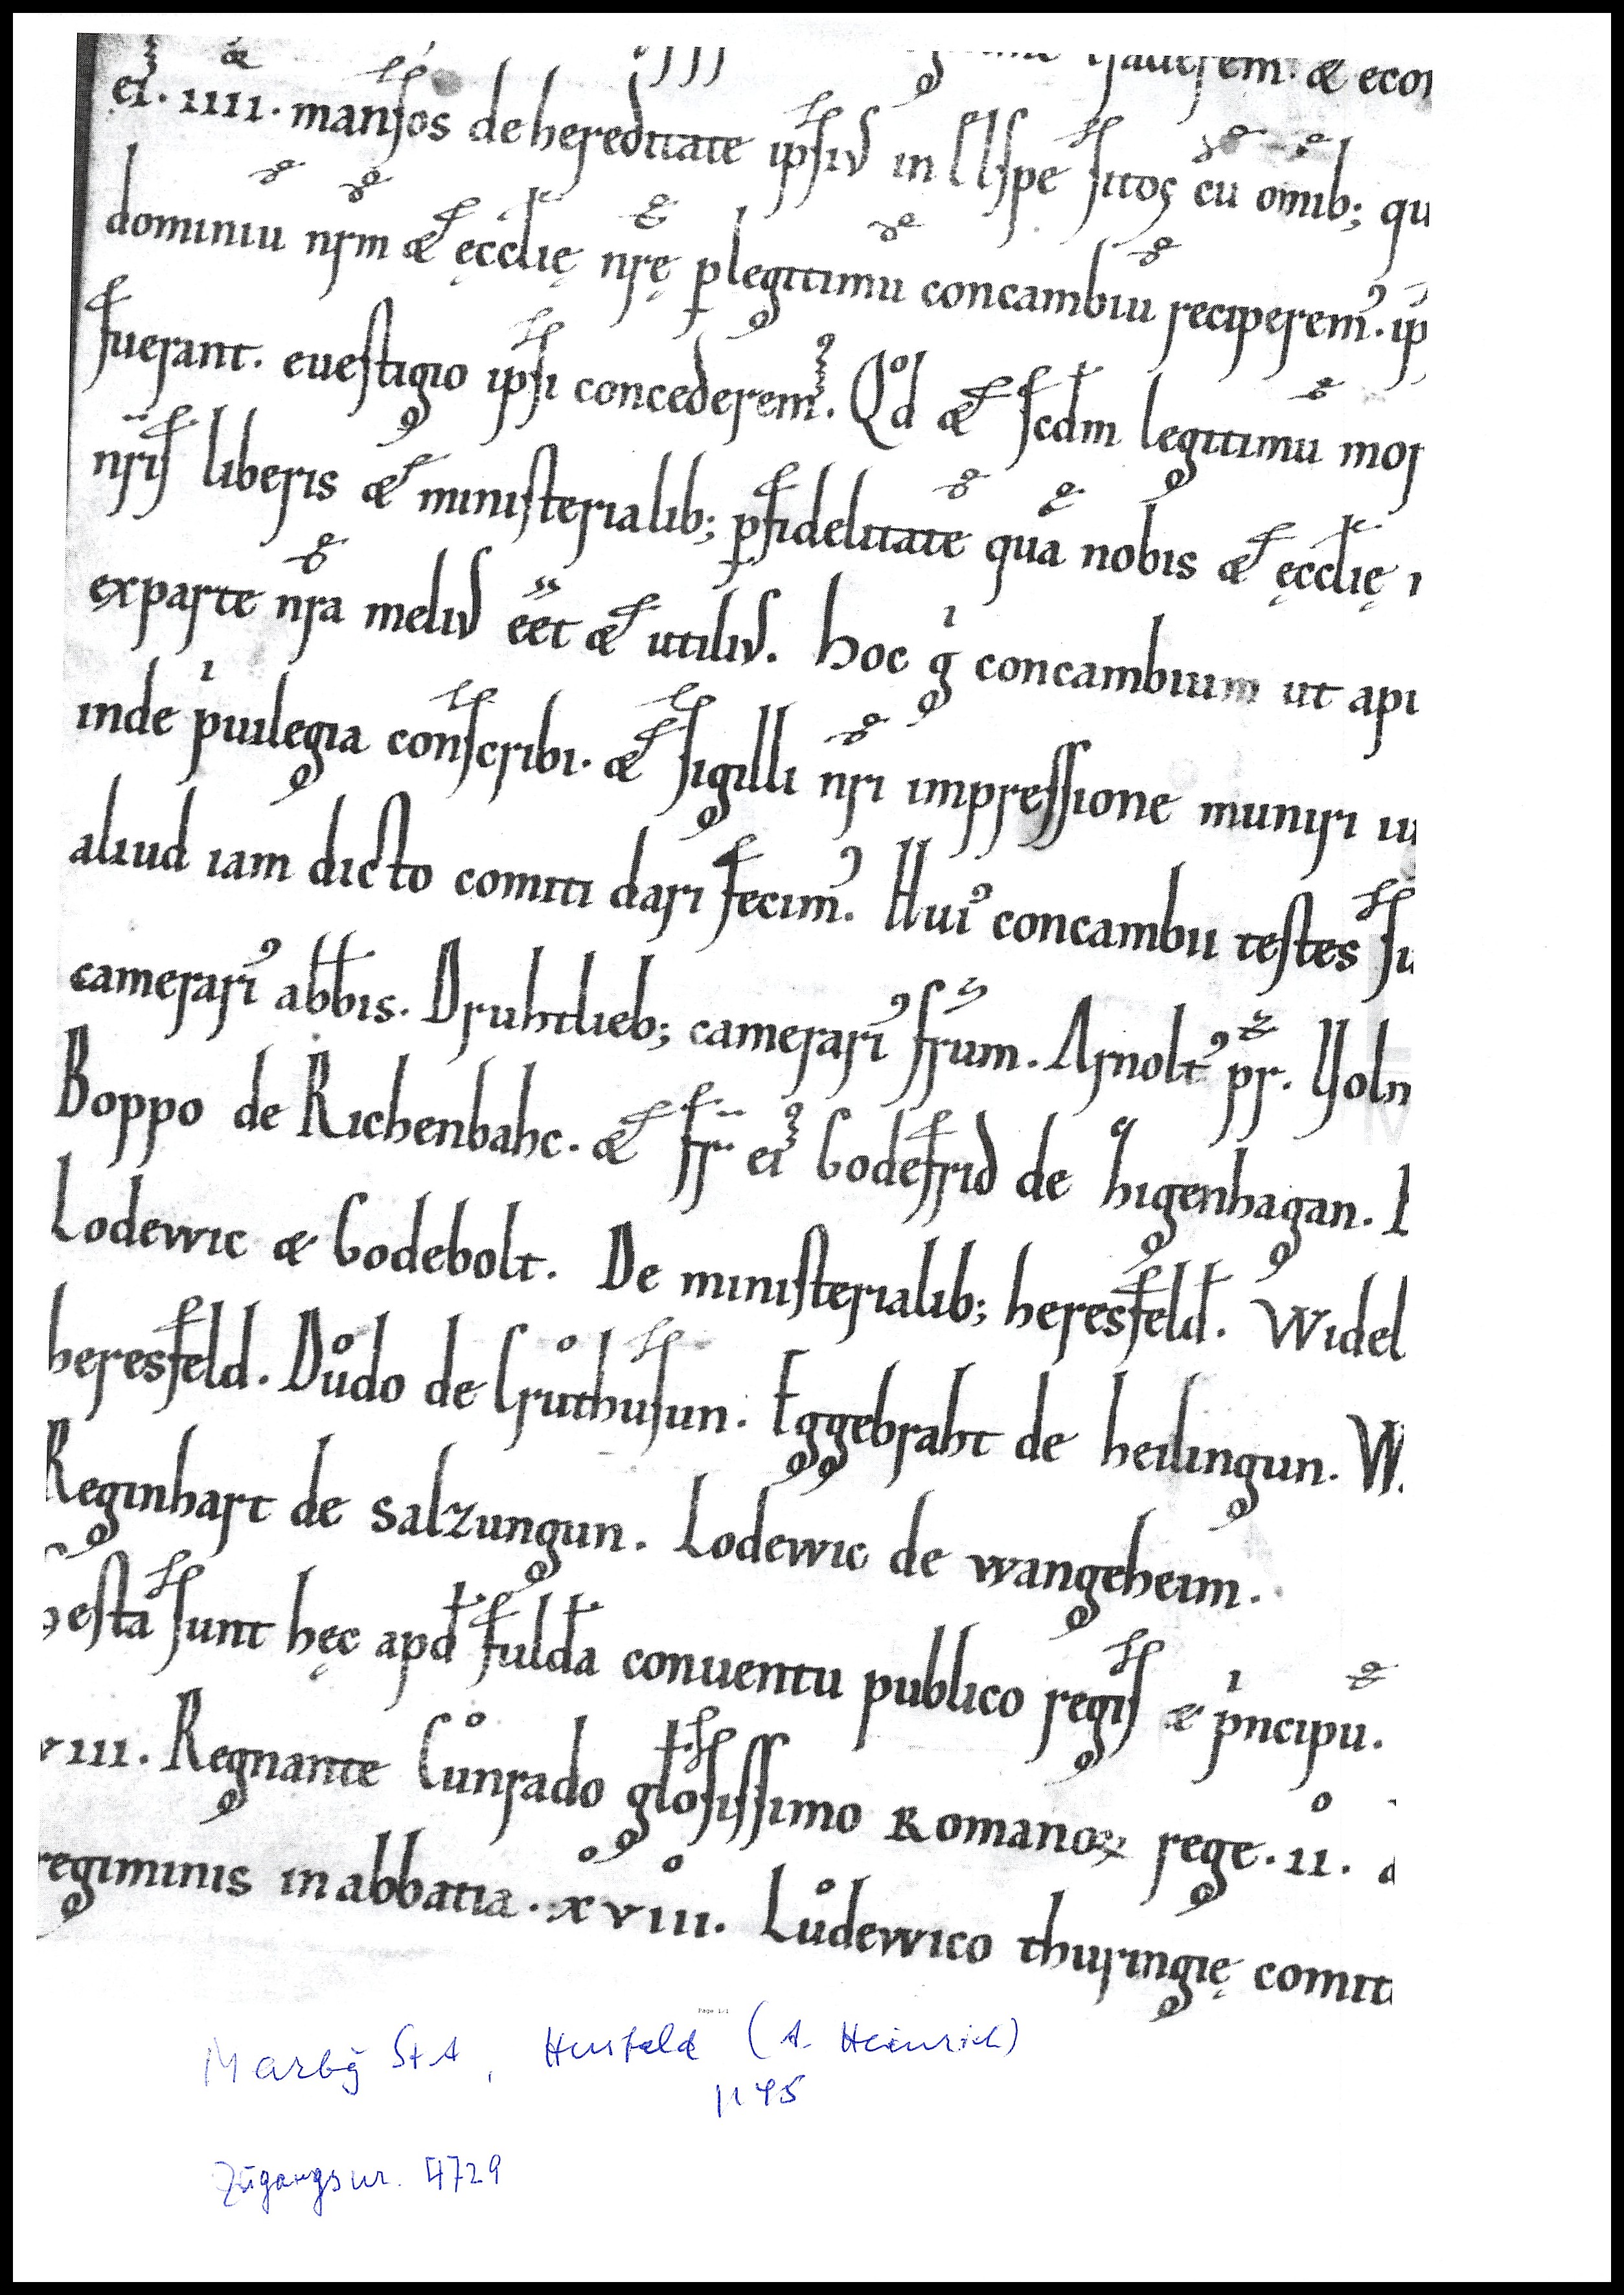 & eco
ei. IIII. mansos de hereditate ipsiꝰ in Elspe sitos cū om̄ib; qu
dominiū nr̄m & ęccłię nr̄ę ꝑ legitimū concambiū reciperemꝰ. ip̄
fuerant. euestigio ipsi concederemꝰ. Qd & scd̄m legitimū mor
nr̄is liberis & ministerialib; ꝑ fidelitatē quā nobis & ęccłię
ex parte nr̄a meliꝰ eēt & utiliꝰ. Hoc gͥ concambium ut api
inde pͥuilegia conscribi. & sigilli nr̄i impressione muniri
aliud iam dicto comiti dari fecimꝰ. Huiꝰ concambii testes su
camerariꝰ abb̄is. Druhtlieb; camerariꝰ fr̄um. Arnoltꝰ pr̄.
Boppo de Richenbahc. & fr̄ eiꝰ Godefrid de higenhagan.
Lodewic & Godebolt. De ministerialib; heresfeld̄. Widel
heresfeld. Důdo de Crůthusun. Eggebraht de heilingun. W
Reginhart de salzungun. Lodewic de wangeheim.
Gesta sunt hęc apd̄ fuld̄a conuentu publico regis & pͥncipū.
VIII. Regnante Cůnrado gło̅sissimo Romanoꝝ rege. II.
regiminis in abbatia. XVIII. Lůdewico thuringię comit
Page 1/1
Marbg StA, Hersfeld (A. Heinrich)
1145
Zugangsnr. 4729